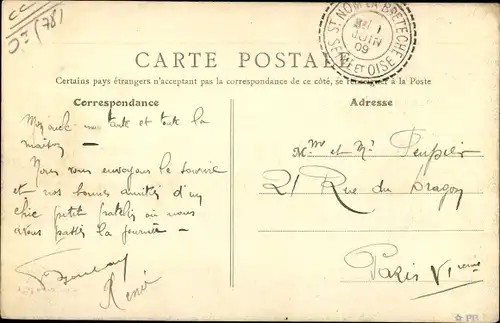 Dt (78)
ST NOM LA BRETECHE
JUIN
09
SEINE ET OISE
CARTE POSTALE
Certains pays étrangers n'acceptant pas la correspondance de ce côté, se renseigner à la Poste
Correspondance
Adresse
tante et toute la
Nous vous envoyons le souvenir
et nos bonnes amitiés d'un
chic petit où nous
avons passé la journée –
René
Mme et Mr
21 Rue du Dragon
Paris VI ième
PB